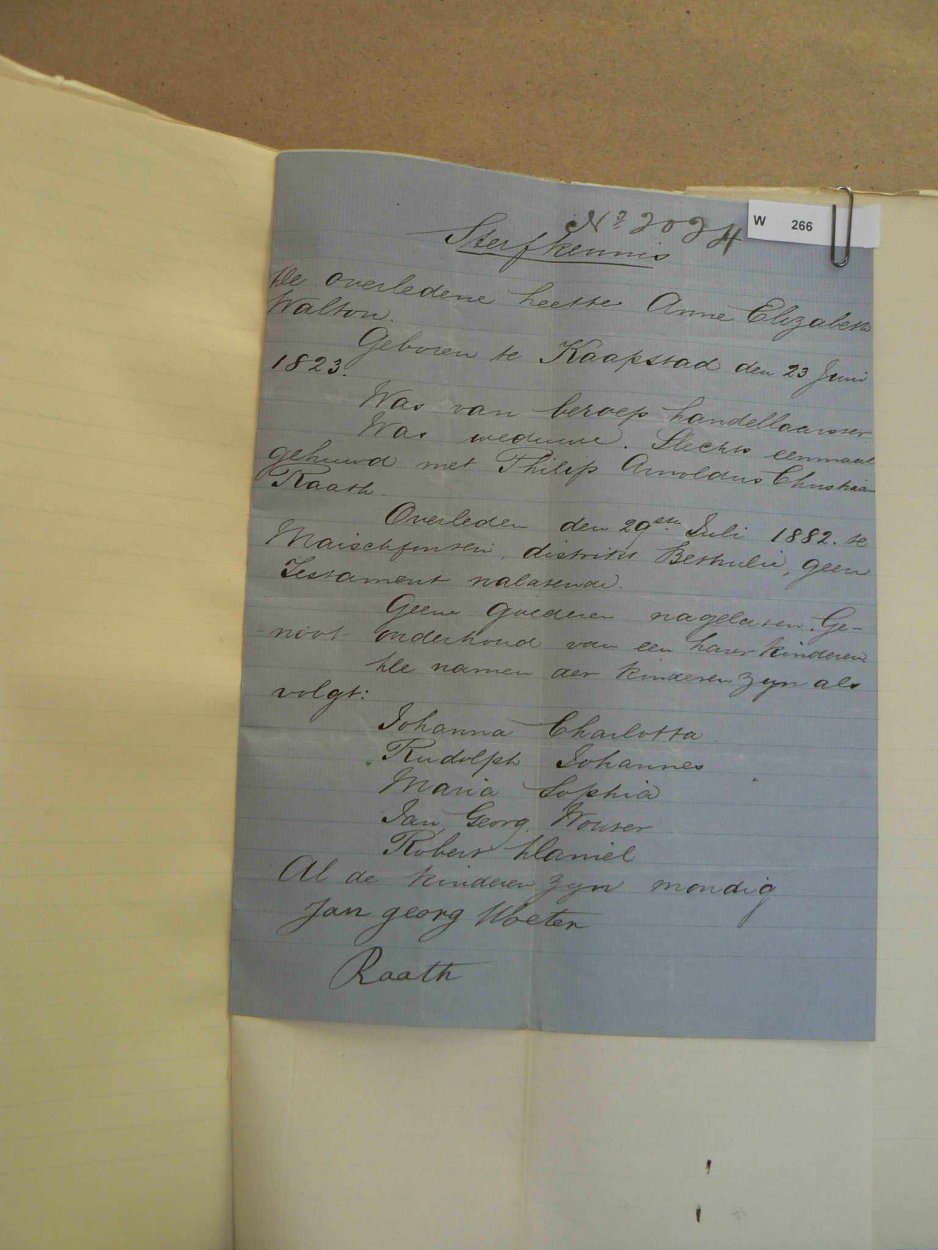 Nº 2024
W 266
Sterfkennis
De overledene heette Anne Elizabeth
Walton.
Geboren te Kaapstad den 23 Juni
1823.
Was van beroep handellaarster
Was weduwe. Slechts eenmaal
gehuwd met Philip Arnoldus Christiaan
Raath.
Overleden den 29ste Juli 1882. te
distrikt Bethulie, geen
Testament nalatende.
Geene goederen nagelaten. Ge-
noot onderhoud van een harer kinderen
De namen der kinderen zyn als
volgt:
Johanna Charlotta
Rudolph Johannes
Maria Sophia
Jan Georg Wouter
Robert Daniel
Al de kinderen zyn mondig
Jan georg Woeter
Raath